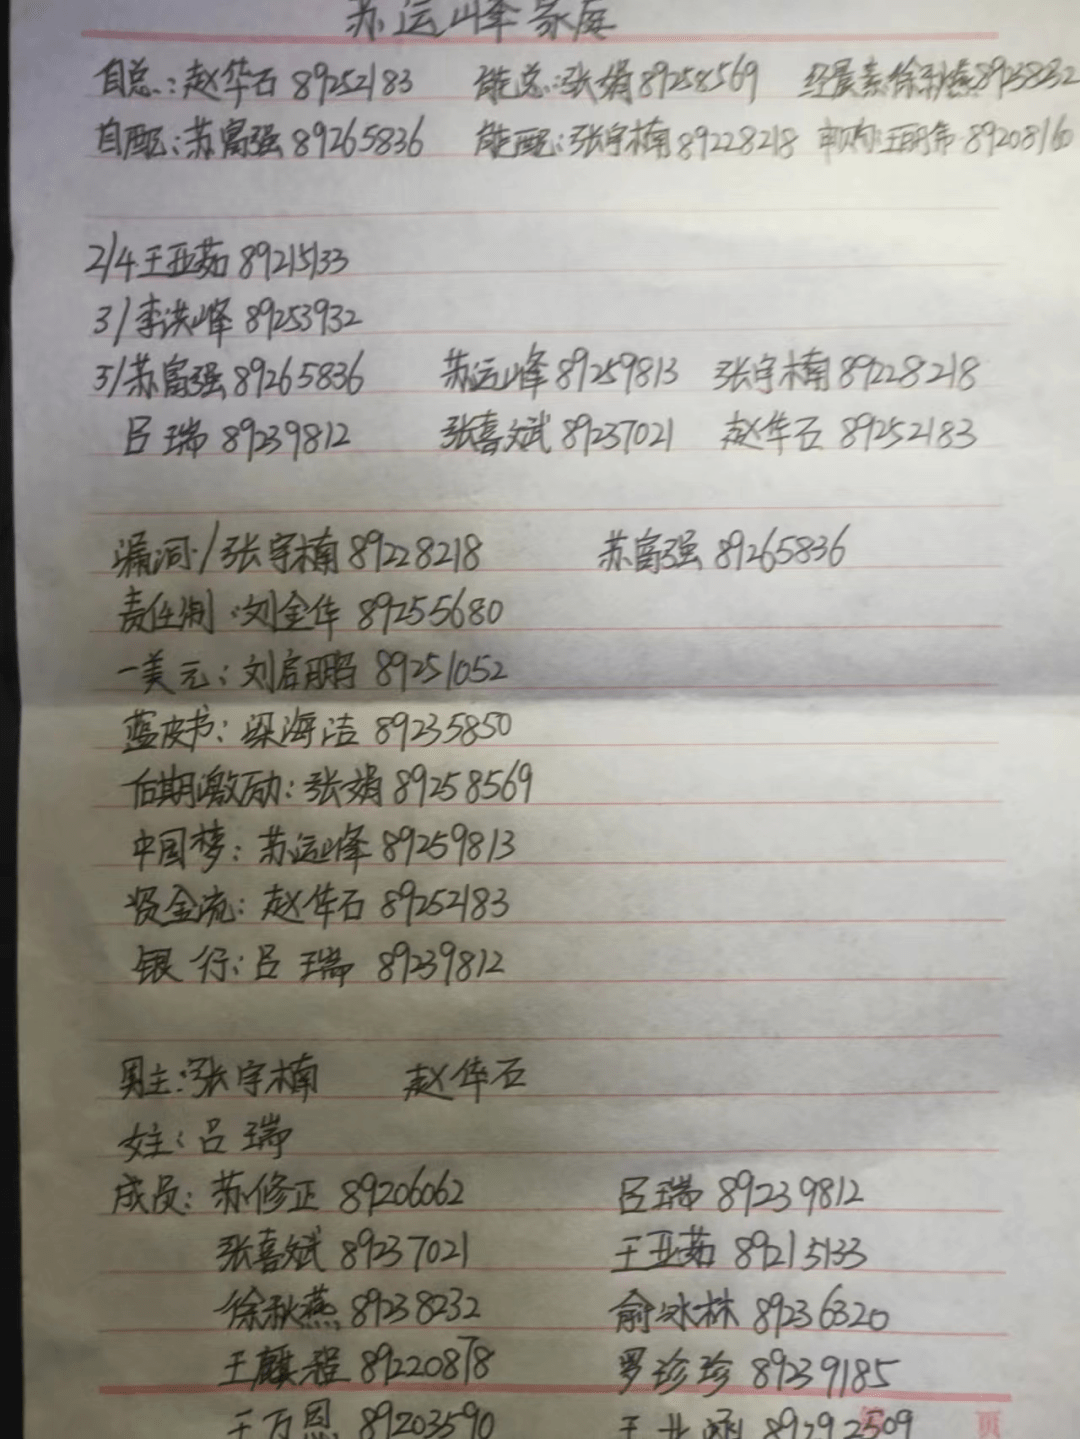 苏运峰家庭
自总:赵华石 89252183 能总:张娟 89258569 经晨素徐秋燕 89238232
自配:苏富强 89265836 能配:张宇楠 89228218 申购:王明伟 89208160
2/4 王亚茹 89215133
3/ 李洪峰 89253932
5/ 苏富强 89265836 苏运峰 89259813 张宇楠 89228218
吕瑞 89239812 张喜斌 89237021 赵华石 89252183
漏洞/张宇楠 89228218 苏富强 89265836
责任制:刘金华 89255680
一美元:刘启鹏 89251052
蓝皮书:梁海洁 89235850
后期激励:张娟 89258569
中国梦:苏运峰 89259813
资金流:赵华石 89252183
银行:吕瑞 89239812
男主:张宇楠 赵华石
女主:吕瑞
成员:苏修正 89206062 吕瑞 89239812
张喜斌 89237021 王亚茹 89215133
徐秋燕 89238232 俞冰林 89236320
王麒程 89220878 罗珍珍 89239185
王万恩 89203590 王业 89292509
页